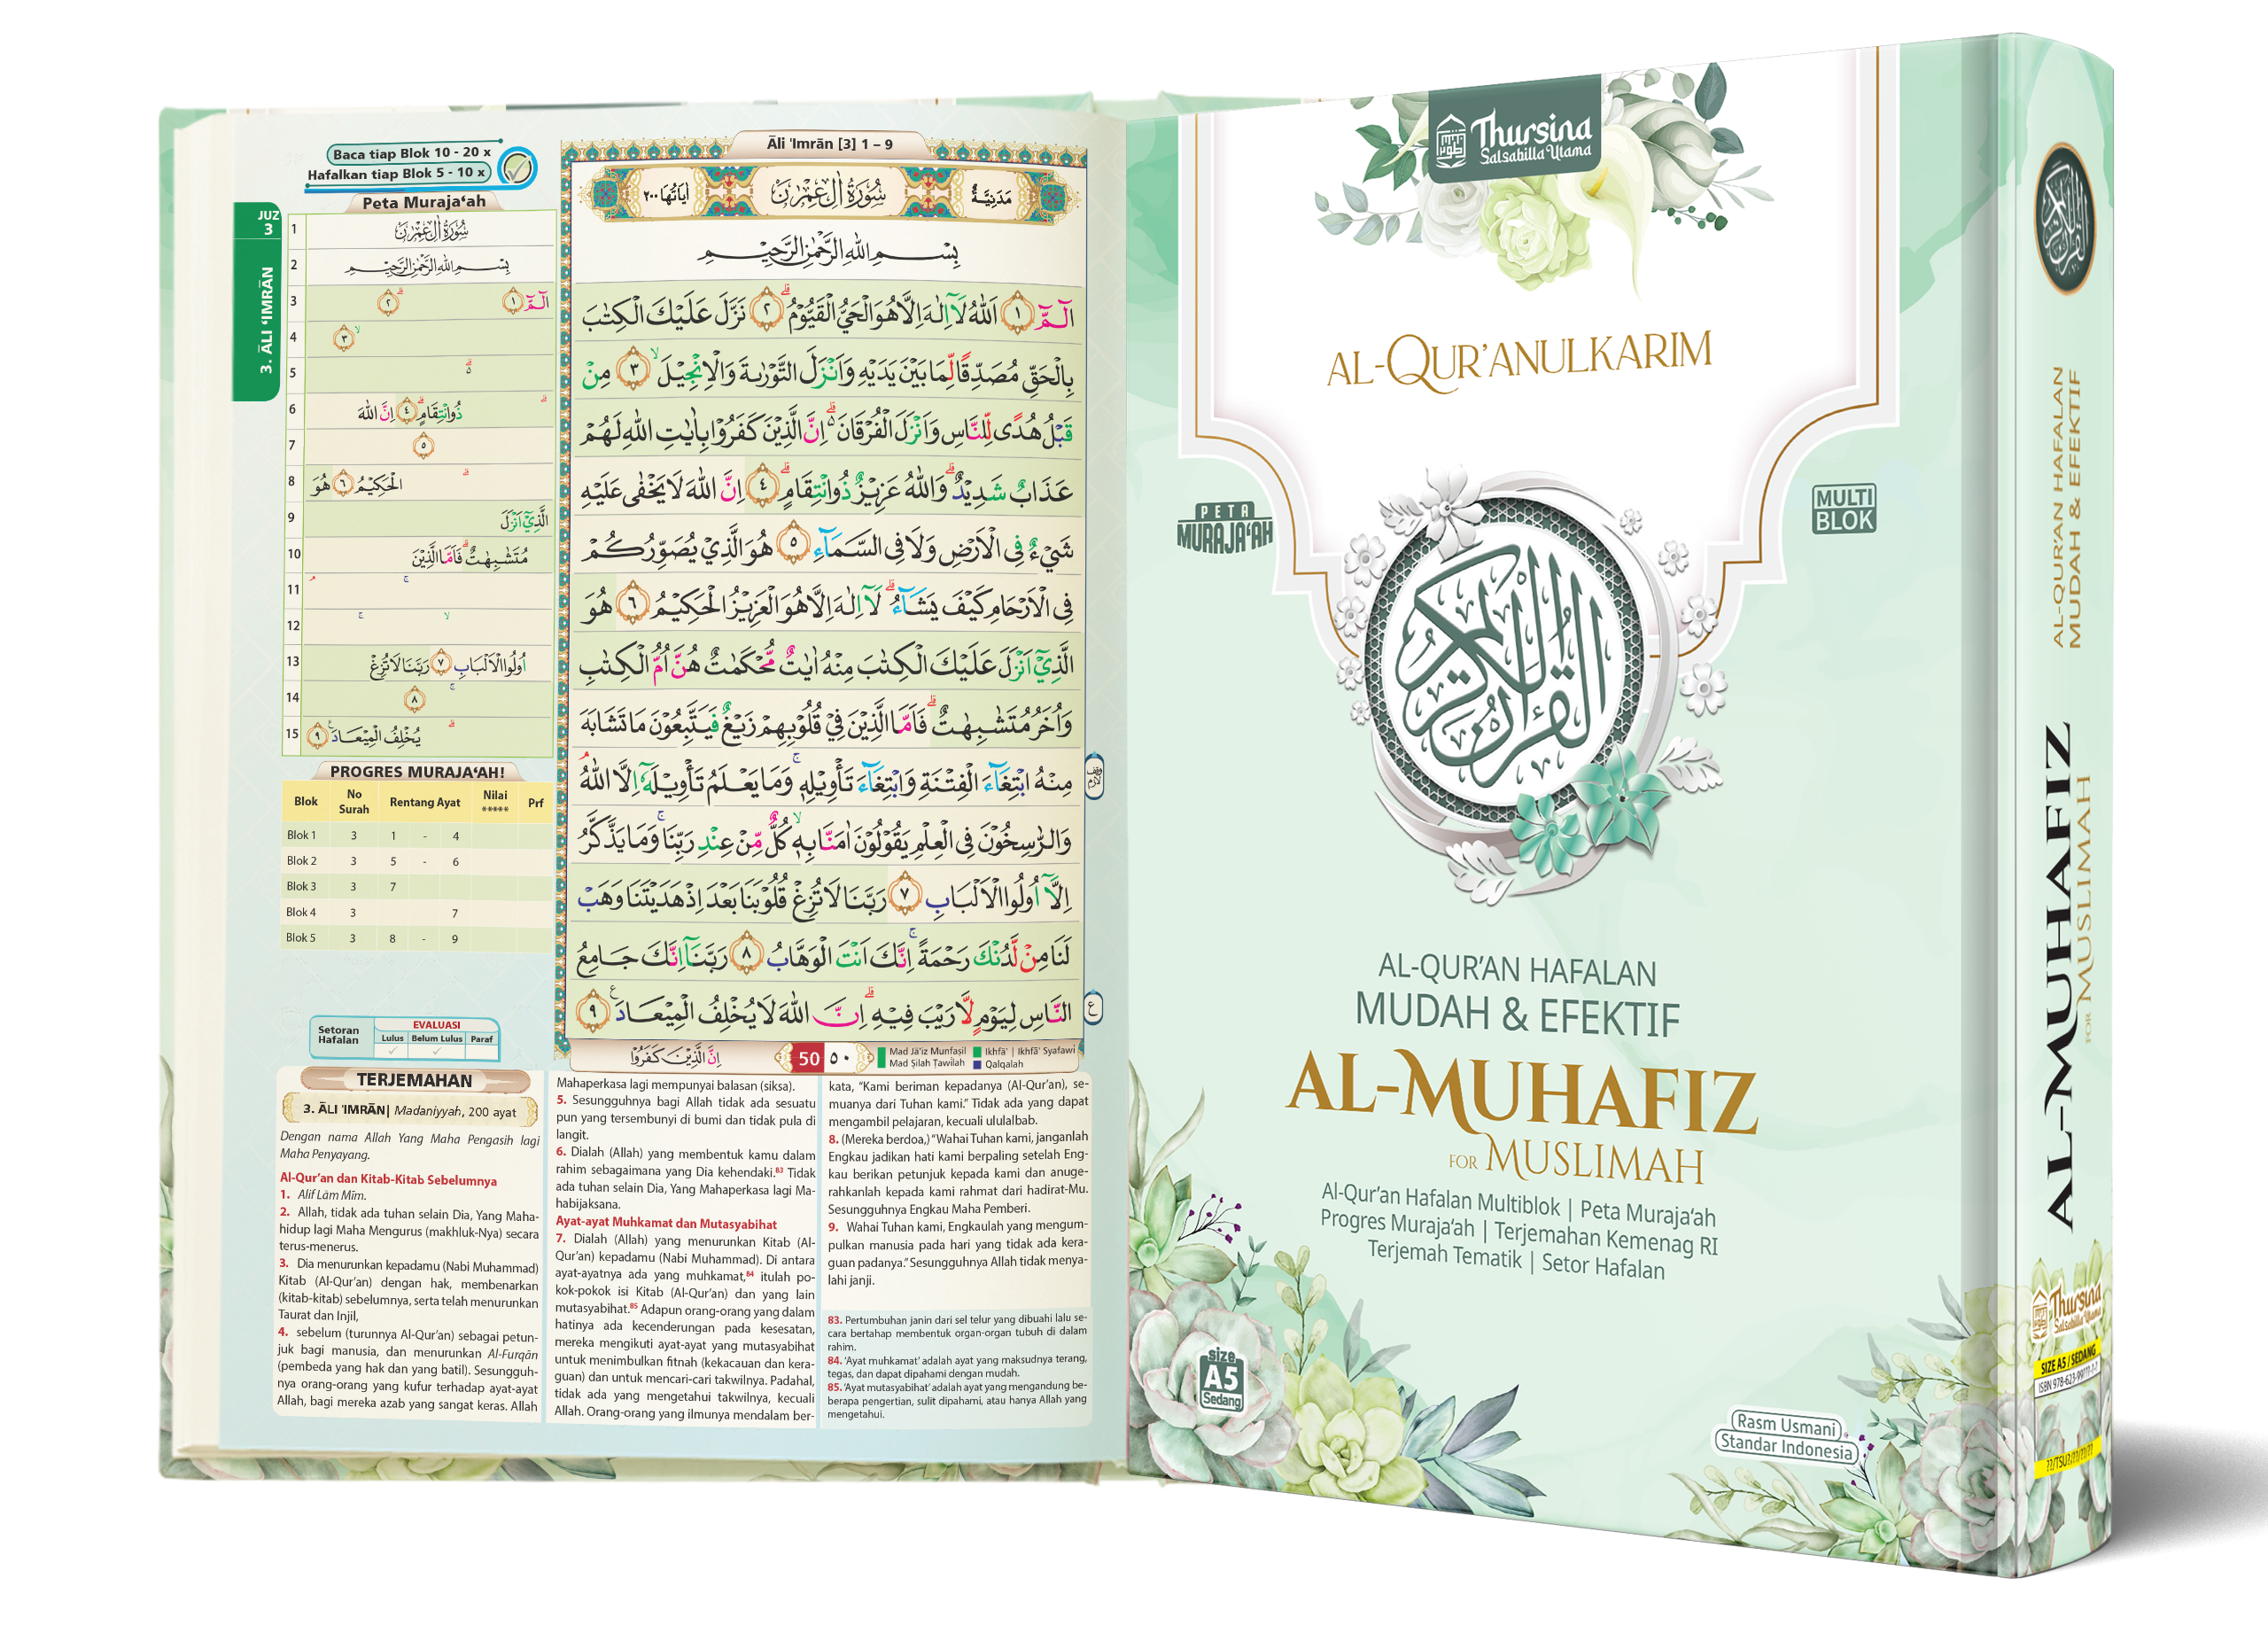 Baca tiap Blok 10 - 20 x
Hafalkan tiap Blok 5 - 10 x
Peta Muraja‘ah
JUZ
3
3. ĀLI ‘IMRĀN
1 سُوْرَةُ اٰلِ عِمْرٰنَ
2 بِسْمِ اللّٰهِ الرَّحْمٰنِ الرَّحِيْمِ
3 الۤمّۤ ۝١ ۝٢
4 ۝٣
5
6 ذُو انْتِقَامٍ ۝٤ اِنَّ اللّٰهَ
7 ۝٥
8 الْحَكِيْمُ ۝٦ هُوَ
9 الَّذِيْٓ اَنْزَلَ
10 مُتَشٰبِهٰتٌ فَاَمَّا الَّذِيْنَ
11
12
13 اُولُوا الْاَلْبَابِ ۝٧ رَبَّنَا لَا تُزِغْ
14 ۝٨
15 يُخْلِفُ الْمِيْعَادَ ۝٩
PROGRES MURAJA‘AH!
Blok No Surah Rentang Ayat Nilai ***** Prf
Blok 1 3 1 - 4
Blok 2 3 5 - 6
Blok 3 3 7
Blok 4 3 7
Blok 5 3 8 - 9
Setoran Hafalan
EVALUASI
Lulus Belum Lulus Paraf
Āli 'Imrān [3] 1 – 9
مَدَنِيَّةٌ سُوْرَةُ اٰلِ عِمْرٰنَ اٰيَاتُهَا ٢٠٠
بِسْمِ اللّٰهِ الرَّحْمٰنِ الرَّحِيْمِ
الۤمّۤ ۝١ اَللّٰهُ لَآ اِلٰهَ اِلَّا هُوَ الْحَيُّ الْقَيُّوْمُۗ ۝٢ نَزَّلَ عَلَيْكَ الْكِتٰبَ
بِالْحَقِّ مُصَدِّقًا لِّمَا بَيْنَ يَدَيْهِ وَاَنْزَلَ التَّوْرٰىةَ وَالْاِنْجِيْلَۙ ۝٣ مِنْ
قَبْلُ هُدًى لِّلنَّاسِ وَاَنْزَلَ الْفُرْقَانَ ەۗ اِنَّ الَّذِيْنَ كَفَرُوْا بِاٰيٰتِ اللّٰهِ لَهُمْ
عَذَابٌ شَدِيْدٌۗ وَاللّٰهُ عَزِيْزٌ ذُو انْتِقَامٍۗ ۝٤ اِنَّ اللّٰهَ لَا يَخْفٰى عَلَيْهِ
شَيْءٌ فِى الْاَرْضِ وَلَا فِى السَّمَاۤءِ ۝٥ هُوَ الَّذِيْ يُصَوِّرُكُمْ
فِى الْاَرْحَامِ كَيْفَ يَشَاۤءُۗ لَآ اِلٰهَ اِلَّا هُوَ الْعَزِيْزُ الْحَكِيْمُ ۝٦ هُوَ
الَّذِيْٓ اَنْزَلَ عَلَيْكَ الْكِتٰبَ مِنْهُ اٰيٰتٌ مُّحْكَمٰتٌ هُنَّ اُمُّ الْكِتٰبِ
وَاُخَرُ مُتَشٰبِهٰتٌۗ فَاَمَّا الَّذِيْنَ فِيْ قُلُوْبِهِمْ زَيْغٌ فَيَتَّبِعُوْنَ مَا تَشَابَهَ
مِنْهُ ابْتِغَاۤءَ الْفِتْنَةِ وَابْتِغَاۤءَ تَأْوِيْلِهٖۚ وَمَا يَعْلَمُ تَأْوِيْلَهٗٓ اِلَّا اللّٰهُۘ
وَالرّٰسِخُوْنَ فِى الْعِلْمِ يَقُوْلُوْنَ اٰمَنَّا بِهٖۙ كُلٌّ مِّنْ عِنْدِ رَبِّنَاۚ وَمَا يَذَّكَّرُ
اِلَّآ اُولُوا الْاَلْبَابِ ۝٧ رَبَّنَا لَا تُزِغْ قُلُوْبَنَا بَعْدَ اِذْ هَدَيْتَنَا وَهَبْ
لَنَا مِنْ لَّدُنْكَ رَحْمَةًۚ اِنَّكَ اَنْتَ الْوَهَّابُ ۝٨ رَبَّنَآ اِنَّكَ جَامِعُ
النَّاسِ لِيَوْمٍ لَّا رَيْبَ فِيْهِۗ اِنَّ اللّٰهَ لَا يُخْلِفُ الْمِيْعَادَ ۝٩
وقف لازم
ع
اِنَّ الَّذِيْنَ كَفَرُوْا
50 ٥٠
Mad Jā'iz Munfaṣil
Mad Ṣilah Ṭawīlah
Ikhfā' | Ikhfā' Syafawi
Qalqalah
TERJEMAHAN
3. ĀLI 'IMRĀN| Madaniyyah, 200 ayat
Dengan nama Allah Yang Maha Pengasih lagi
Maha Penyayang.
Al-Qur’an dan Kitab-Kitab Sebelumnya
1. Alif Lām Mīm.
2. Allah, tidak ada tuhan selain Dia, Yang Maha-
hidup lagi Maha Mengurus (makhluk-Nya) secara
terus-menerus.
3. Dia menurunkan kepadamu (Nabi Muhammad)
Kitab (Al-Qur’an) dengan hak, membenarkan
(kitab-kitab) sebelumnya, serta telah menurunkan
Taurat dan Injil,
4. sebelum (turunnya Al-Qur’an) sebagai petun-
juk bagi manusia, dan menurunkan Al-Furqān
(pembeda yang hak dan yang batil). Sesungguh-
nya orang-orang yang kufur terhadap ayat-ayat
Allah, bagi mereka azab yang sangat keras. Allah
Mahaperkasa lagi mempunyai balasan (siksa).
5. Sesungguhnya bagi Allah tidak ada sesuatu
pun yang tersembunyi di bumi dan tidak pula di
langit.
6. Dialah (Allah) yang membentuk kamu dalam
rahim sebagaimana yang Dia kehendaki.83 Tidak
ada tuhan selain Dia, Yang Mahaperkasa lagi Ma-
habijaksana.
Ayat-ayat Muhkamat dan Mutasyabihat
7. Dialah (Allah) yang menurunkan Kitab (Al-
Qur’an) kepadamu (Nabi Muhammad). Di antara
ayat-ayatnya ada yang muhkamat,84 itulah po-
kok-pokok isi Kitab (Al-Qur’an) dan yang lain
mutasyabihat.85 Adapun orang-orang yang dalam
hatinya ada kecenderungan pada kesesatan,
mereka mengikuti ayat-ayat yang mutasyabihat
untuk menimbulkan fitnah (kekacauan dan kera-
guan) dan untuk mencari-cari takwilnya. Padahal,
tidak ada yang mengetahui takwilnya, kecuali
Allah. Orang-orang yang ilmunya mendalam ber-
kata, “Kami beriman kepadanya (Al-Qur’an), se-
muanya dari Tuhan kami.” Tidak ada yang dapat
mengambil pelajaran, kecuali ululalbab.
8. (Mereka berdoa,) “Wahai Tuhan kami, janganlah
Engkau jadikan hati kami berpaling setelah Eng-
kau berikan petunjuk kepada kami dan anuge-
rahkanlah kepada kami rahmat dari hadirat-Mu.
Sesungguhnya Engkau Maha Pemberi.
9. Wahai Tuhan kami, Engkaulah yang mengum-
pulkan manusia pada hari yang tidak ada kera-
guan padanya.” Sesungguhnya Allah tidak menya-
lahi janji.
83. Pertumbuhan janin dari sel telur yang dibuahi lalu se-
cara bertahap membentuk organ-organ tubuh di dalam
rahim.
84. ‘Ayat muhkamat’ adalah ayat yang maksudnya terang,
tegas, dan dapat dipahami dengan mudah.
85. ‘Ayat mutasyabihat’ adalah ayat yang mengandung be-
berapa pengertian, sulit dipahami, atau hanya Allah yang
mengetahui.
Thursina
Salsabilla Utama
AL-QUR’ANULKARIM
PETA
MURAJA‘AH
MULTI
BLOK
القرآن الكريم
AL-QUR’AN HAFALAN
MUDAH & EFEKTIF
AL-MUHAFIZ
FOR MUSLIMAH
Al-Qur’an Hafalan Multiblok | Peta Muraja‘ah
Progres Muraja‘ah | Terjemahan Kemenag RI
Terjemah Tematik | Setor Hafalan
size
A5
Sedang
Rasm Usmani
Standar Indonesia
القرآن الكريم
AL-QUR’AN HAFALAN
MUDAH & EFEKTIF
AL-MUHAFIZ
FOR MUSLIMAH
Thursina
Salsabilla Utama
SIZE A5 / SEDANG
ISBN 978-623-99